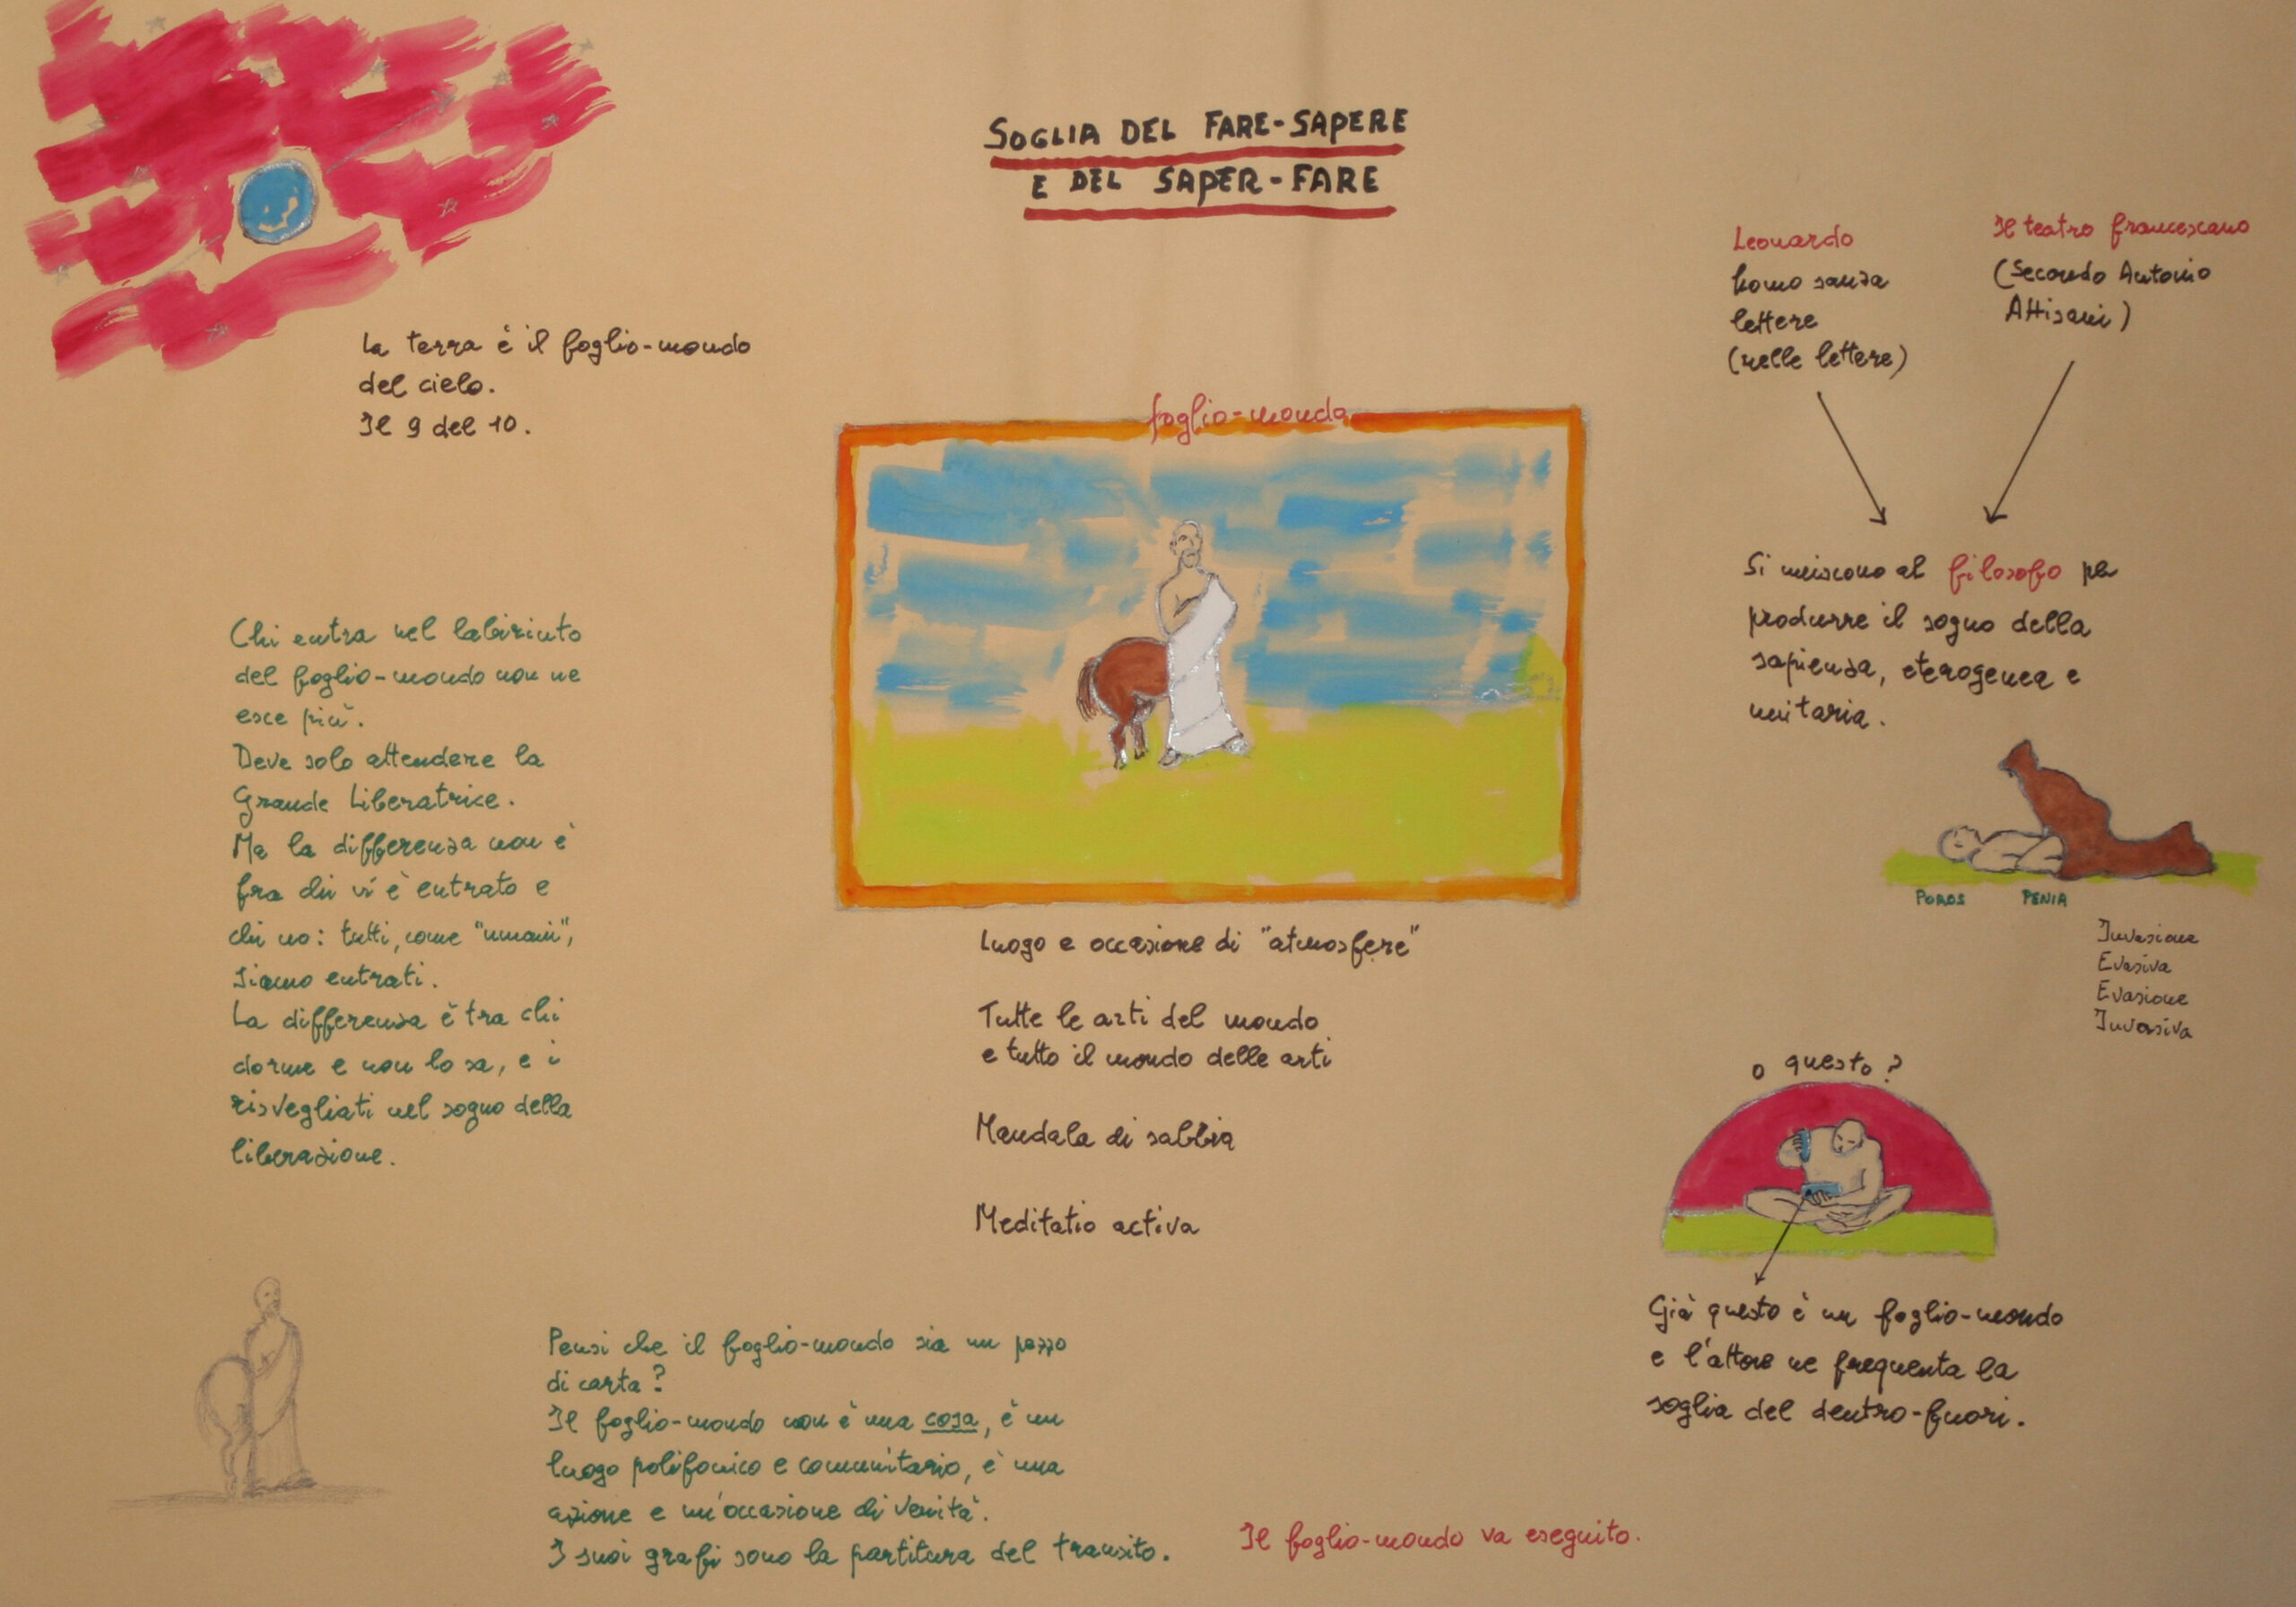 SOGLIA DEL FARE-SAPERE
E DEL SAPER-FARE
La terra è il foglio-mondo
del cielo.
Il 9 del 10.
Chi entra nel labirinto
del foglio-mondo non ne
esce più.
Deve solo attendere la
Grande Liberatrice.
Ma la differenza non è
fra chi vi è entrato e
chi no: tutti, come "umani",
siamo entrati.
La differenza è tra chi
dorme e non lo sa, e i
risvegliati nel sogno della
liberazione.
foglio-mondo
Luogo e occasione di "atmosfere"
Tutte le arti del mondo
e tutto il mondo delle arti
Mandala di sabbia
Meditatio activa
Pensi che il foglio-mondo sia un pezzo
di carta?
Il foglio-mondo non è una cosa, è un
luogo polifonico e comunitario, è una
azione e un'occasione di verità.
I suoi grafi sono la partitura del transito.
Il foglio-mondo va eseguito.
Leonardo
homo sanza
lettere
(nelle lettere)
Il teatro francescano
(Secondo Antonio
Attisani)
Si uniscono al filosofo per
produrre il sogno della
sapienza, eterogenea e
unitaria.
POROS PENIA
Invasione
Evasiva
Evasione
Invasiva
o questo?
Già questo è un foglio-mondo
e l'attore ne frequenta la
soglia del dentro-fuori.